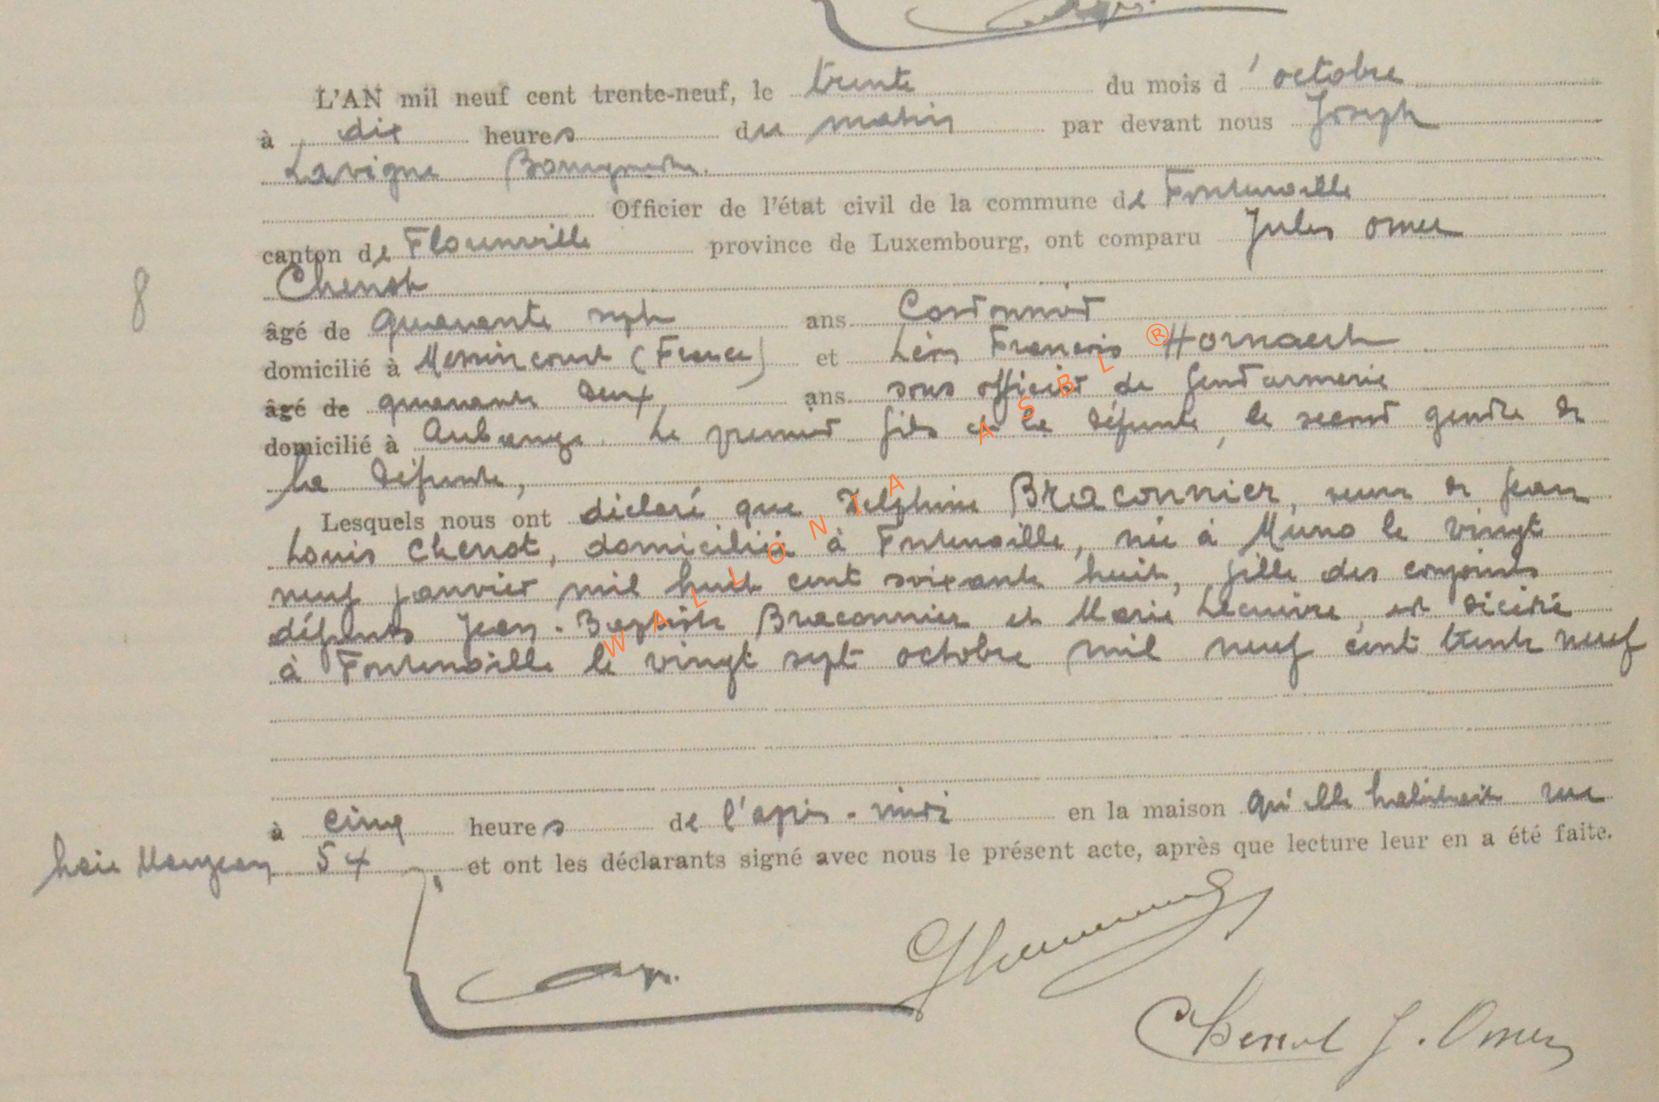 8
L'AN mil neuf cent trente-neuf, le trente du mois d'octobre
à dix heures du matin par devant nous Joseph
Lavigne Bourgmestre.
Officier de l'état civil de la commune de Fontenoille
canton de Florenville province de Luxembourg, ont comparu Jules Omer
Chenot
âgé de quarante sept ans Cordonnier
domicilié à Messincourt (France) et Léon François Hornaert
âgé de quarante deux ans sous officier de gendarmerie
domicilié à Aubange. Le premier fils de la défunte, le second gendre de
la défunte,
Lesquels nous ont déclaré que Delphine Braconnier, veuve de Jean
Louis Chenot, domiciliée à Fontenoille, née à Muno le vingt
neuf janvier mil huit cent soixante huit, fille des conjoints
défunts Jean-Baptiste Braconnier et Marie Lecuivre, est décédée
à Fontenoille le vingt sept octobre mil neuf cent trente neuf
à cinq heures de l'après-midi en la maison qu'elle habitait rue
haie 54 et ont les déclarants signé avec nous le présent acte, après que lecture leur en a été faite.
Chenot J. Omer
WALLONIA ASBL ®